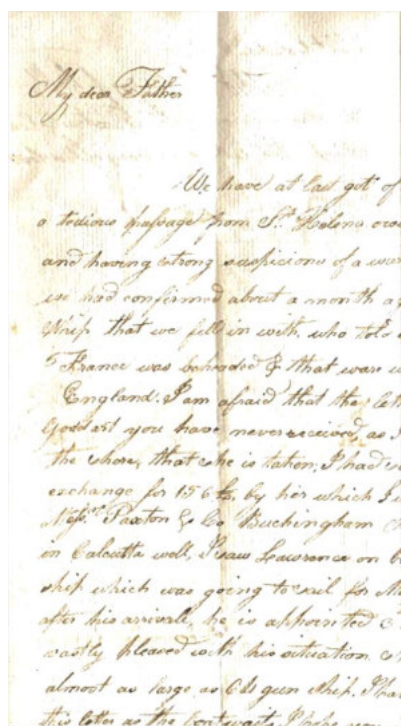 My dear Father
We have at last got of
a tedious passage from St. Helena
and having strong suspicions of a
we had confirmed about a month
Ship that we fell in with, who told
France was beheaded & that warr
England. I am afraid that the
Goddart you have never received, as
the shore, that she is taken, I had
exchange for 156 by her which I
Messrs. Paxton & Co Buckingham
in Calcutta well, I saw Lawrence on
ship which was going to sail for
after his arrivall, he is appointed
vastly pleased with his situation
almost as large as 64 gun ship. I
this letter as the